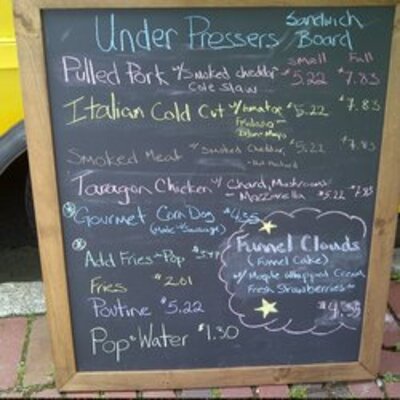 Under Pressers Sandwich Board
Small Full
Pulled Pork w/ Smoked cheddar $5.22 $7.83
Cole Slaw
Italian Cold Cut w/ tomatoe $5.22 $7.83
Smoked Meat w/ Smoked Cheddar, $5.22 $7.83
Hot Mustard
Taragon Chicken w/ Chard, Mushrooms
Mozzarella $5.22 $7.83
Gourmet Corn Dog $4.35
Add Fries + Pop
Fries $2.01
Poutine $5.22
Pop + Water $1.30
Funnel Clouds
(Funnel Cake)
w/ Maple Whipped Cream
Fresh Strawberries
$4.35